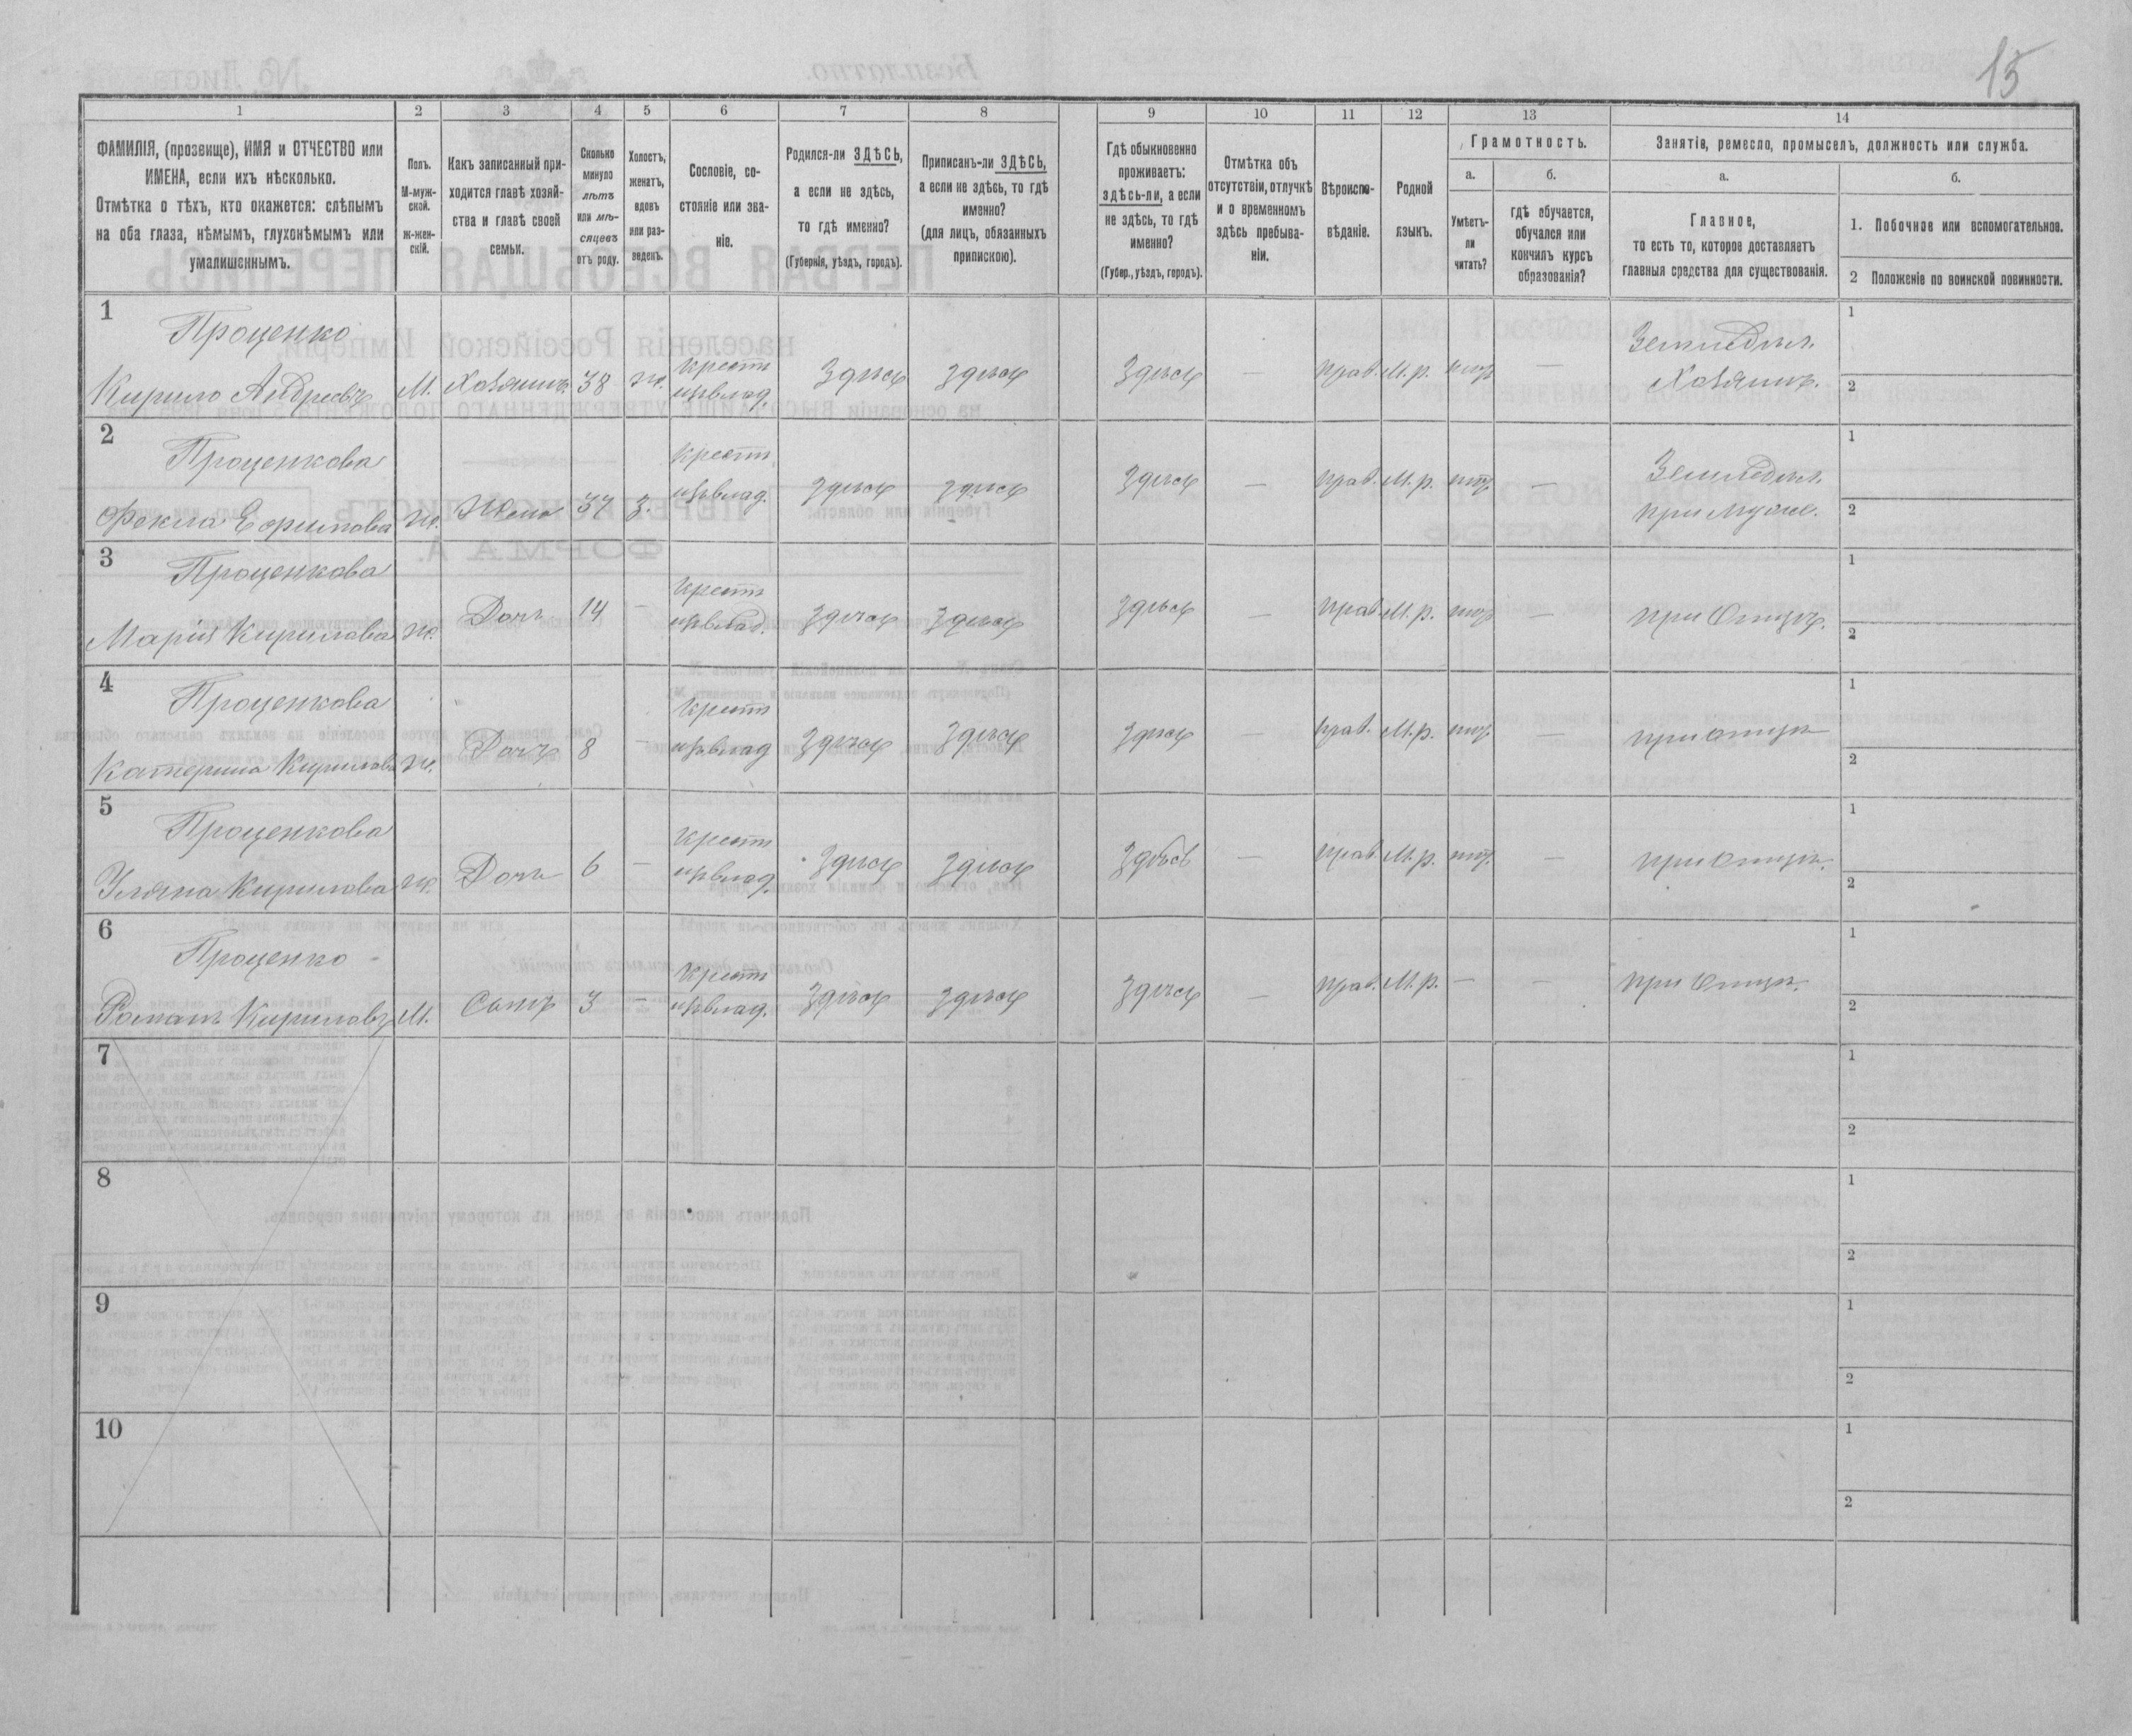 15
1 2 3 4 5 6 7 8 9 10 11 12 13 14
ФАМИЛІЯ, (прозвище), ИМЯ и ОТЧЕСТВО или
ИМЕНА, если ихъ нѣсколько.
Отмѣтка о тѣхъ, кто окажется: слѣпымъ
на оба глаза, нѣмымъ, глухонѣмымъ или
умалишеннымъ.
Полъ.
М-муж-
ской.
Ж-жен-
скій.
Какъ записанный при-
ходится главѣ хозяй-
ства и главѣ своей
семьи.
Сколько
минуло
лѣтъ
или мѣ-
сяцевъ
отъ роду.
Холостъ,
женатъ,
вдовъ
или раз-
веденъ.
Сословіе, со-
стояніе или зва-
ніе.
Родился-ли ЗДѢСЬ,
а если не здѣсь,
то гдѣ именно?
(Губернія, уѣздъ, городъ).
Приписанъ-ли ЗДѢСЬ,
а если не здѣсь, то гдѣ
именно?
(для лицъ, обязанныхъ
припискою).
Гдѣ обыкновенно
проживаетъ:
здѣсь-ли, а если
не здѣсь, то гдѣ
именно?
(Губер., уѣздъ, городъ).
Отмѣтка объ
отсутствіи, отлучкѣ
и о временномъ
здѣсь пребыва-
ніи.
Вѣроиспо-
вѣданіе.
Родной
языкъ.
Грамотность.
а.
Умѣетъ-
ли
читать?
б.
гдѣ обучается,
обучался или
кончилъ курсъ
образованія?
Занятія, ремесло, промыселъ, должность или служба.
а.
Главное,
то есть то, которое доставляетъ
главныя средства для существованія.
б.
1. Побочное или вспомогательное.
2 Положеніе по воинской повинности.
1
Проценко крест. Земледѣл. 1
Кирило Андреевъ М. Хозяинъ 38 ж. Здѣсь здѣсь Здѣсь — прав. М.р. — Хозяинъ. 2
2
Проценкова крест. Земледѣл. 1
Фекла Ефимова Ж. Жена 37 З. здѣсь здѣсь Здѣсь — прав. М.р. — при мужѣ. 2
3
Проценкова крест. 1
Марія Кирилова Ж. Дочь 14 — Здѣсь Здѣсь Здѣсь — прав. М.р. — при Отцѣ. 2
4
Проценкова крест. 1
Катерина Кирилова Ж. Дочь 8 — Здѣсь Здѣсь Здѣсь — прав. М.р. — при отцѣ 2
5
Проценкова крест. 1
Уляна Кирилова Ж. Дочь 6 — Здѣсь Здѣсь Здѣсь — прав. М.р. — при отцѣ. 2
6
Проценко крест. 1
Романъ Кириловъ М. Сынъ 3 — Здѣсь здѣсь Здѣсь — прав. М.р. — — при Отцѣ. 2
7 1
2
8 1
2
9 1
2
10 1
2